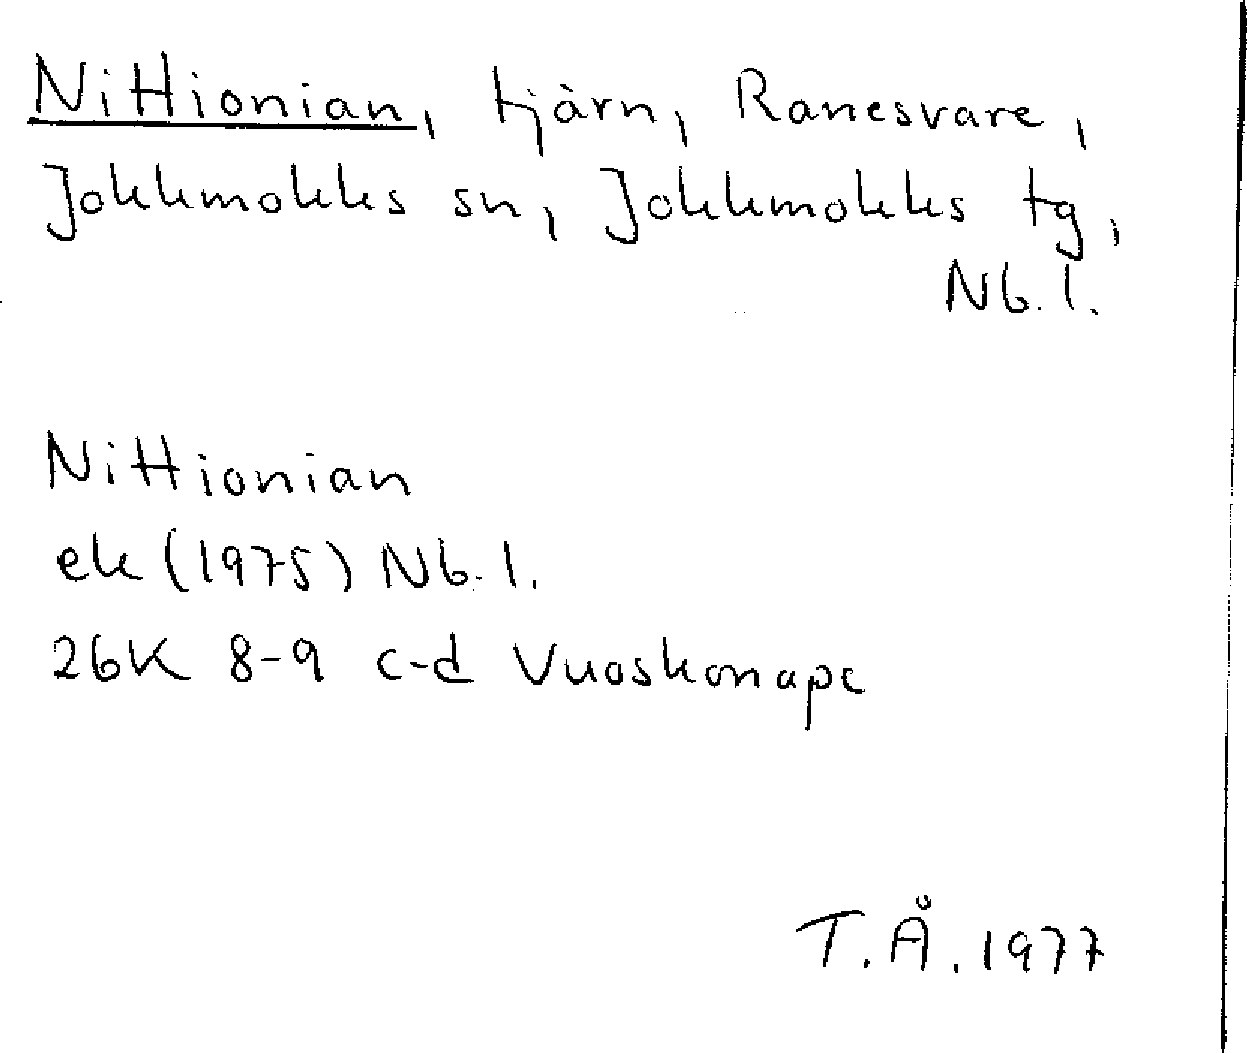 Nittionian, tjärn, Ranesvare,
Jokkmokks sn, Jokkmokks tg,
Nb.l.
Nittionian
ek (1975) Nb.l.
26K 8-9 c-d Vuoskonape
T.Å.1977